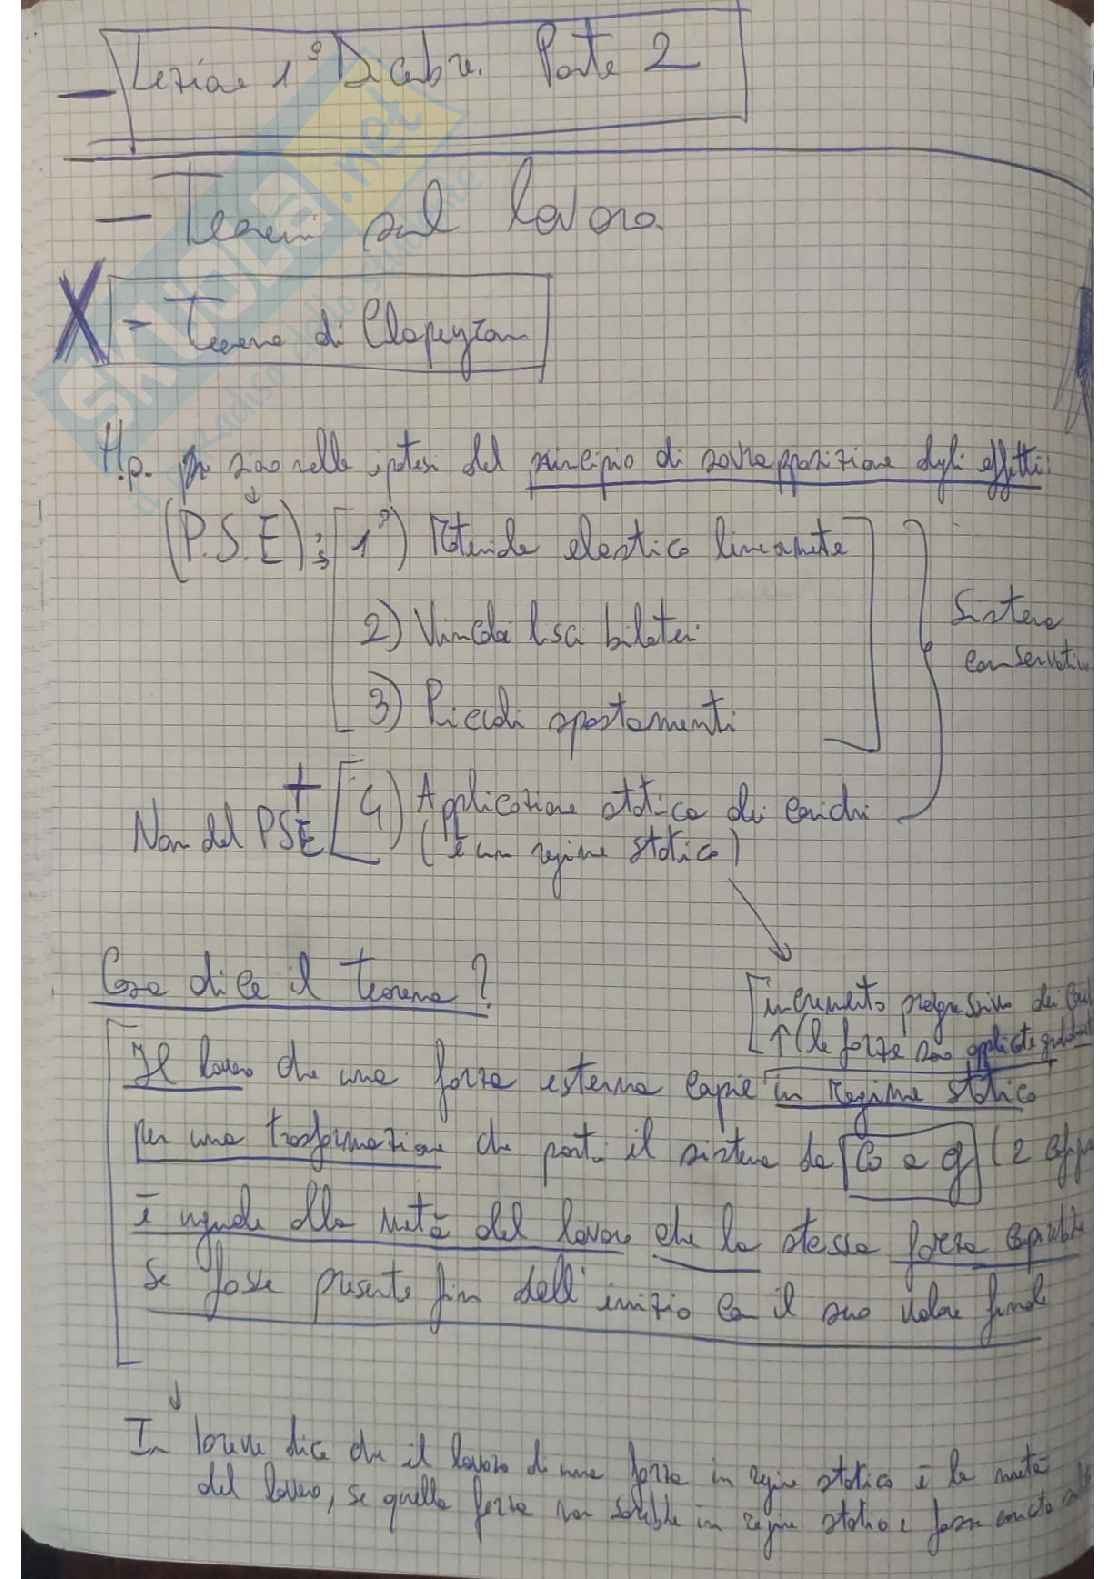 Lezione 1° Dicembre. Parte 2
- Teoremi sul lavoro.
X - Teorema di Clapeyron
Hp. sono nelle ipotesi del principio di sovrapposizione degli effetti:
(P.S.E) : 1°) Materiale elastico linearmente
2) Vincoli lisci bilateri
Sistema
conservativo
3) Piccoli spostamenti
+ 4) Applicazione statica dei carichi
Non del PSE (è un regime statico)
Cosa dice il teorema?
incremento progressivo dei
↑ (le forze sono applicate
Il lavoro che una forza esterna compie in regime statico
per una trasformazione che porta il sistema da C0 a (2
è uguale alla metà del lavoro che la stessa forza
se fosse presente fin dall'inizio con il suo valore finale
In breve dice che il lavoro di una forza in regime statico è la metà
del lavoro, se quella forza non sarebbe in regime statico e fosse
SKUOLA.net